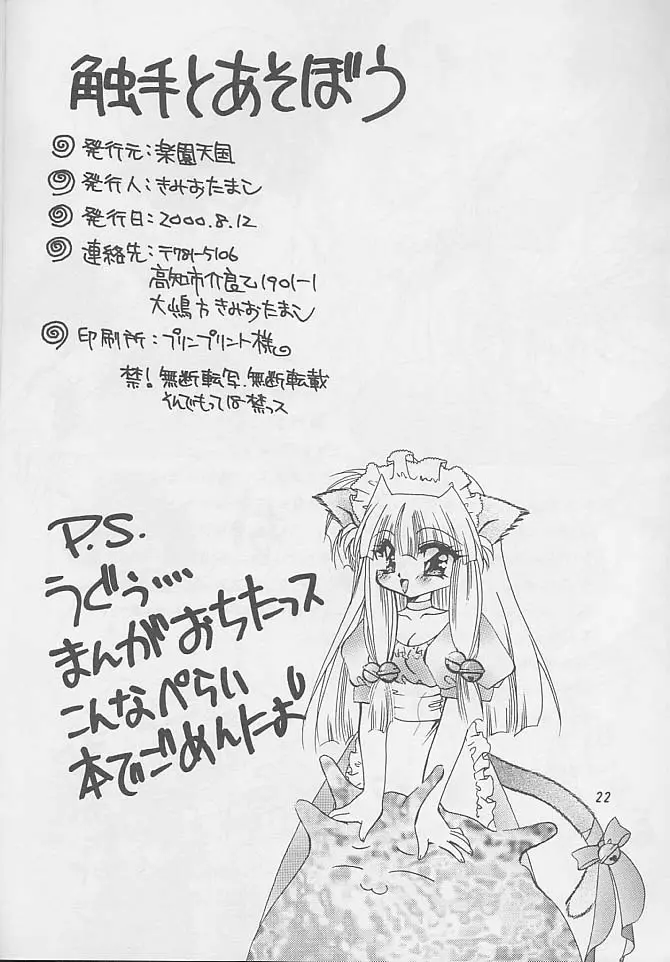 触手とあそぼう
発行元:楽園天国
発行人:きみおたまこ
発行日:2000.8.12
連絡先:〒781-5106
高知市介良乙1901-1
大嶋方きみおたまこ
印刷所:プリンプリント様。
禁!無断転写、無断転載
そんでもって18禁っス
P.S.
うぐぅ・・・・
まんがおちたっス
こんなぺらい
本でごめんによ
22